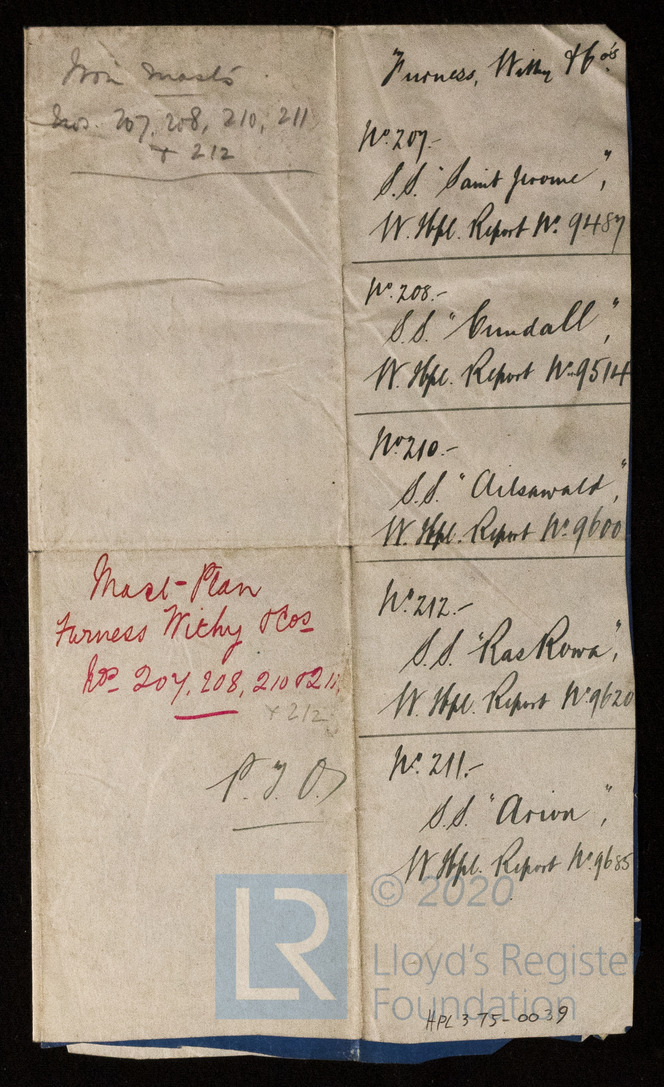 Iron Masts
Nos. 207, 208, 210, 211
+ 212
Mast-Plan
Furness Withy & Cos
Nos 207, 208, 210 & 211,
+ 212
P.T.O.
Furness, Withy & Co's.
No. 207.-
S.S. "Saint Jerome",
W. Hpl. Report No. 9487
No. 208.-
S.S. "Cundall",
W. Hpl. Report No. 9514
No 210.-
S.S. "Ailsawald",
W. Hpl. Report No. 9600
No. 212.-
S.S. "Ras Kowa",
W. Hpl. Report No. 9620
No. 211.-
S.S. "Arion",
W. Hpl. Report No. 9685
LR
© 2020
Lloyd's Register
Foundation
HPL 375-0039